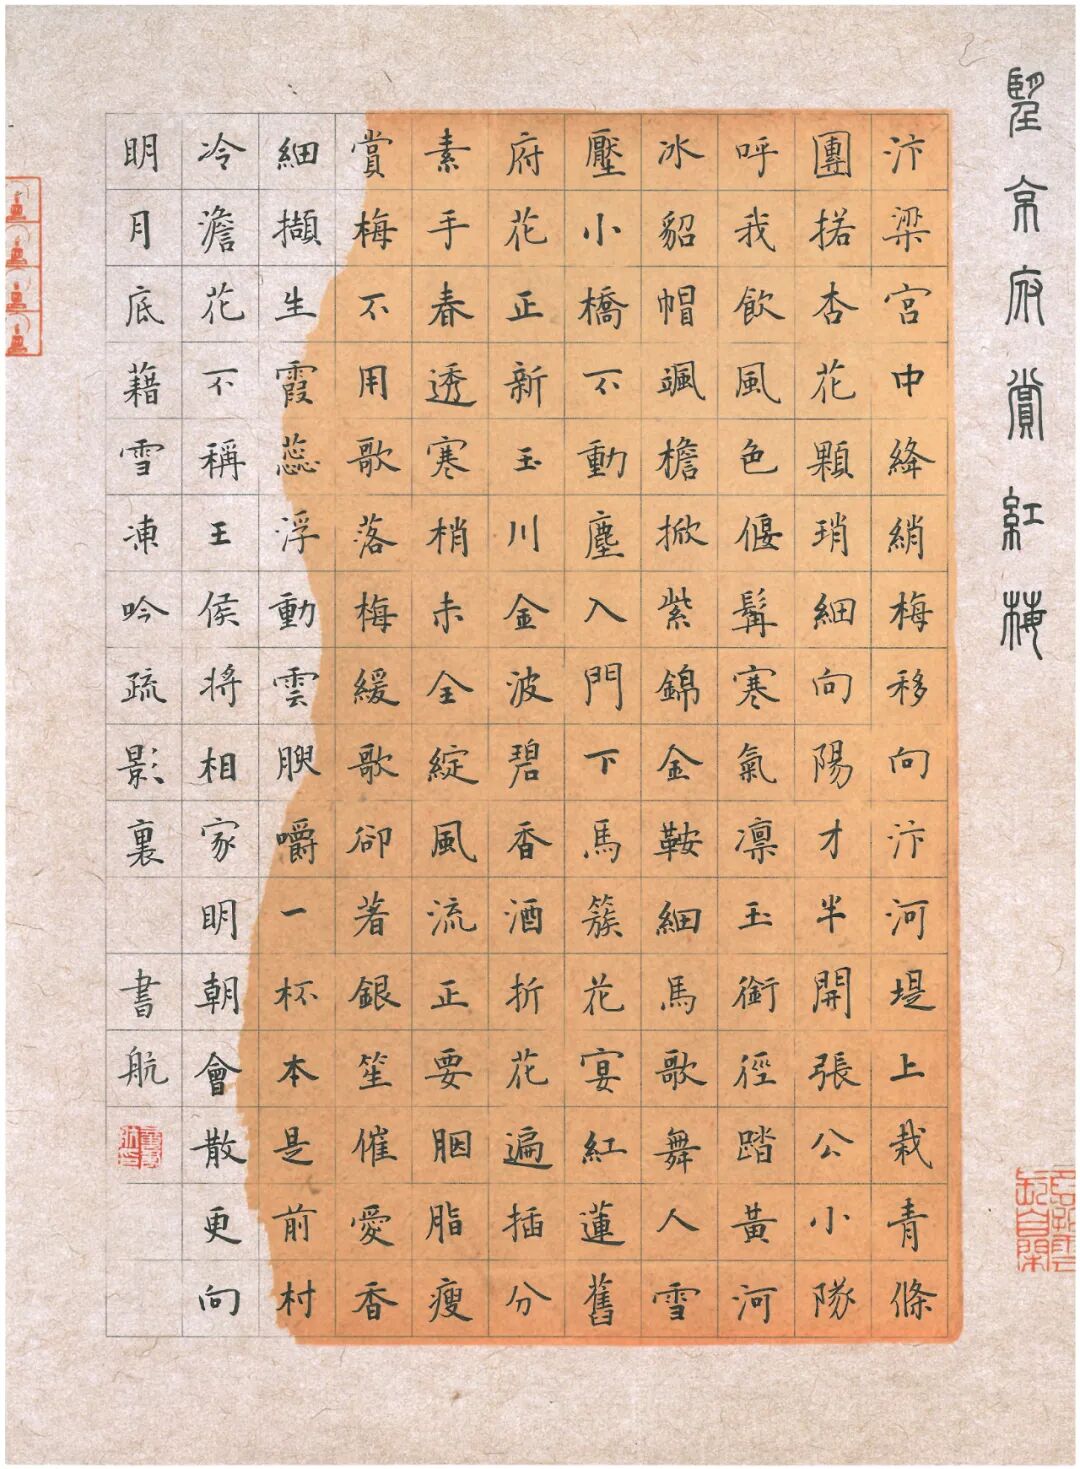 朢京府賞紅梅
汴梁宮中絳綃梅移向汴河堤上栽青條
團掿杏花顆瑣細向陽才半開張公小隊
呼我飲風色偃髯寒氣凜玉銜徑踏黃河
冰貂帽颯檐掀紫錦金鞍細馬歌舞人雪
壓小橋不動塵入門下馬簇花宴紅蓮舊
府花正新玉川金波碧香酒折花遍插分
素手春透寒梢未全綻風流正要胭脂瘦
賞梅不用歌落梅緩歌卻著銀笙催愛香
細擷生霞蕊浮動雲腴嚼一杯本是前村
冷澹花不稱王侯將相家明朝會散更向
明月底藉雪凍吟疏影裏 書航